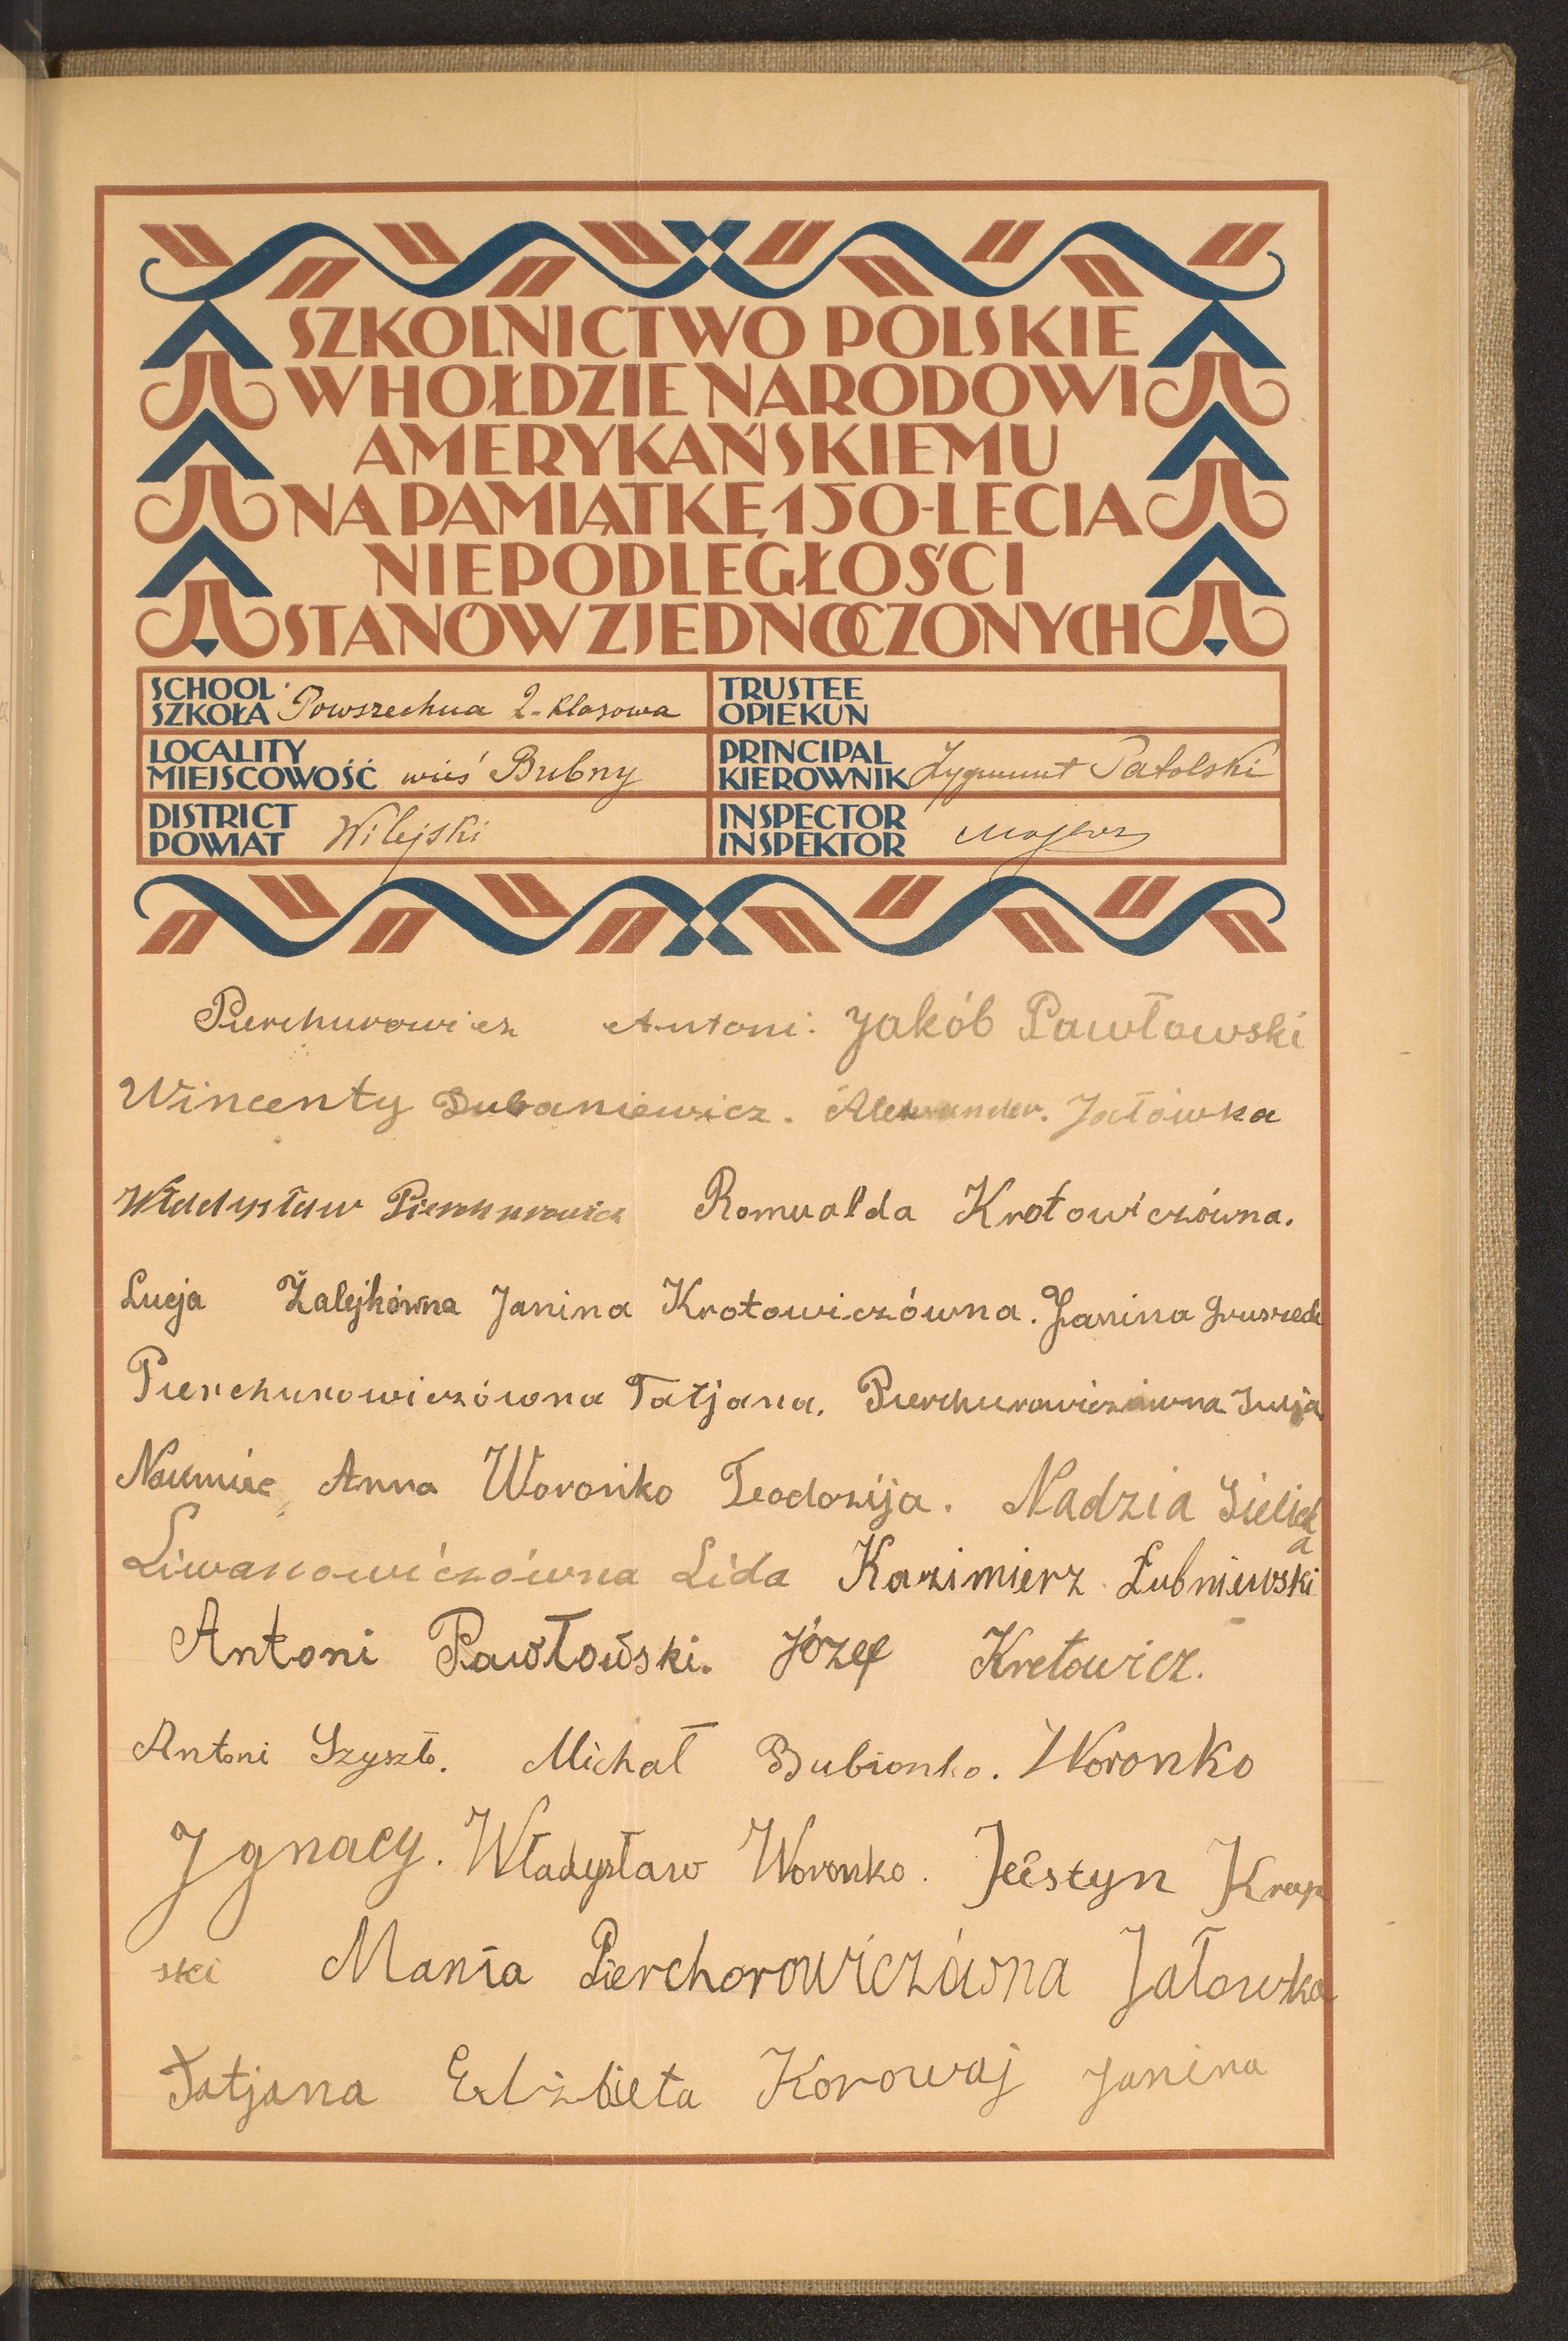 SZKOLNICTWO POLSKIE
W HOŁDZIE NARODOWI
AMERYKAŃSKIEMU
NA PAMIĄTKĘ 150-LECIA
NIEPODLEGŁOŚCI
STANÓW ZJEDNOCZONYCH
SCHOOL
SZKOŁA Powszechna 2-klasowa
TRUSTEE
OPIEKUN
LOCALITY
MIEJSCOWOŚĆ wieś Bubny
PRINCIPAL
KIEROWNIK Zygmunt Patolski
DISTRICT
POWIAT Wilejski
INSPECTOR
INSPEKTOR
Pierchurowicz Antoni. Jakób Pawłowski
Wincenty Dubaniewicz. Aleksander. Jałówka
Władysław Pierchurowicz Romualda Krotowiczówna.
Łucja Żalejkówna Janina Krotowiczówna. Janina
Pierchurowiczówna Tatjana. Pierchurowiczówna Julja
Naumiec Anna Woronko Teodozija. Nadzia
Liwanowiczówna Lida Kazimierz Łubniewski
Antoni Pawłowski. Józef Kretowicz.
Antoni Szyszło. Michał Bubionko. Woronko
Jgnacy. Władysław Woronko. Justyn Krap
ski Mania Pierchorowiczówna Jałowka
Tatjana Elżbieta Korowaj Janina